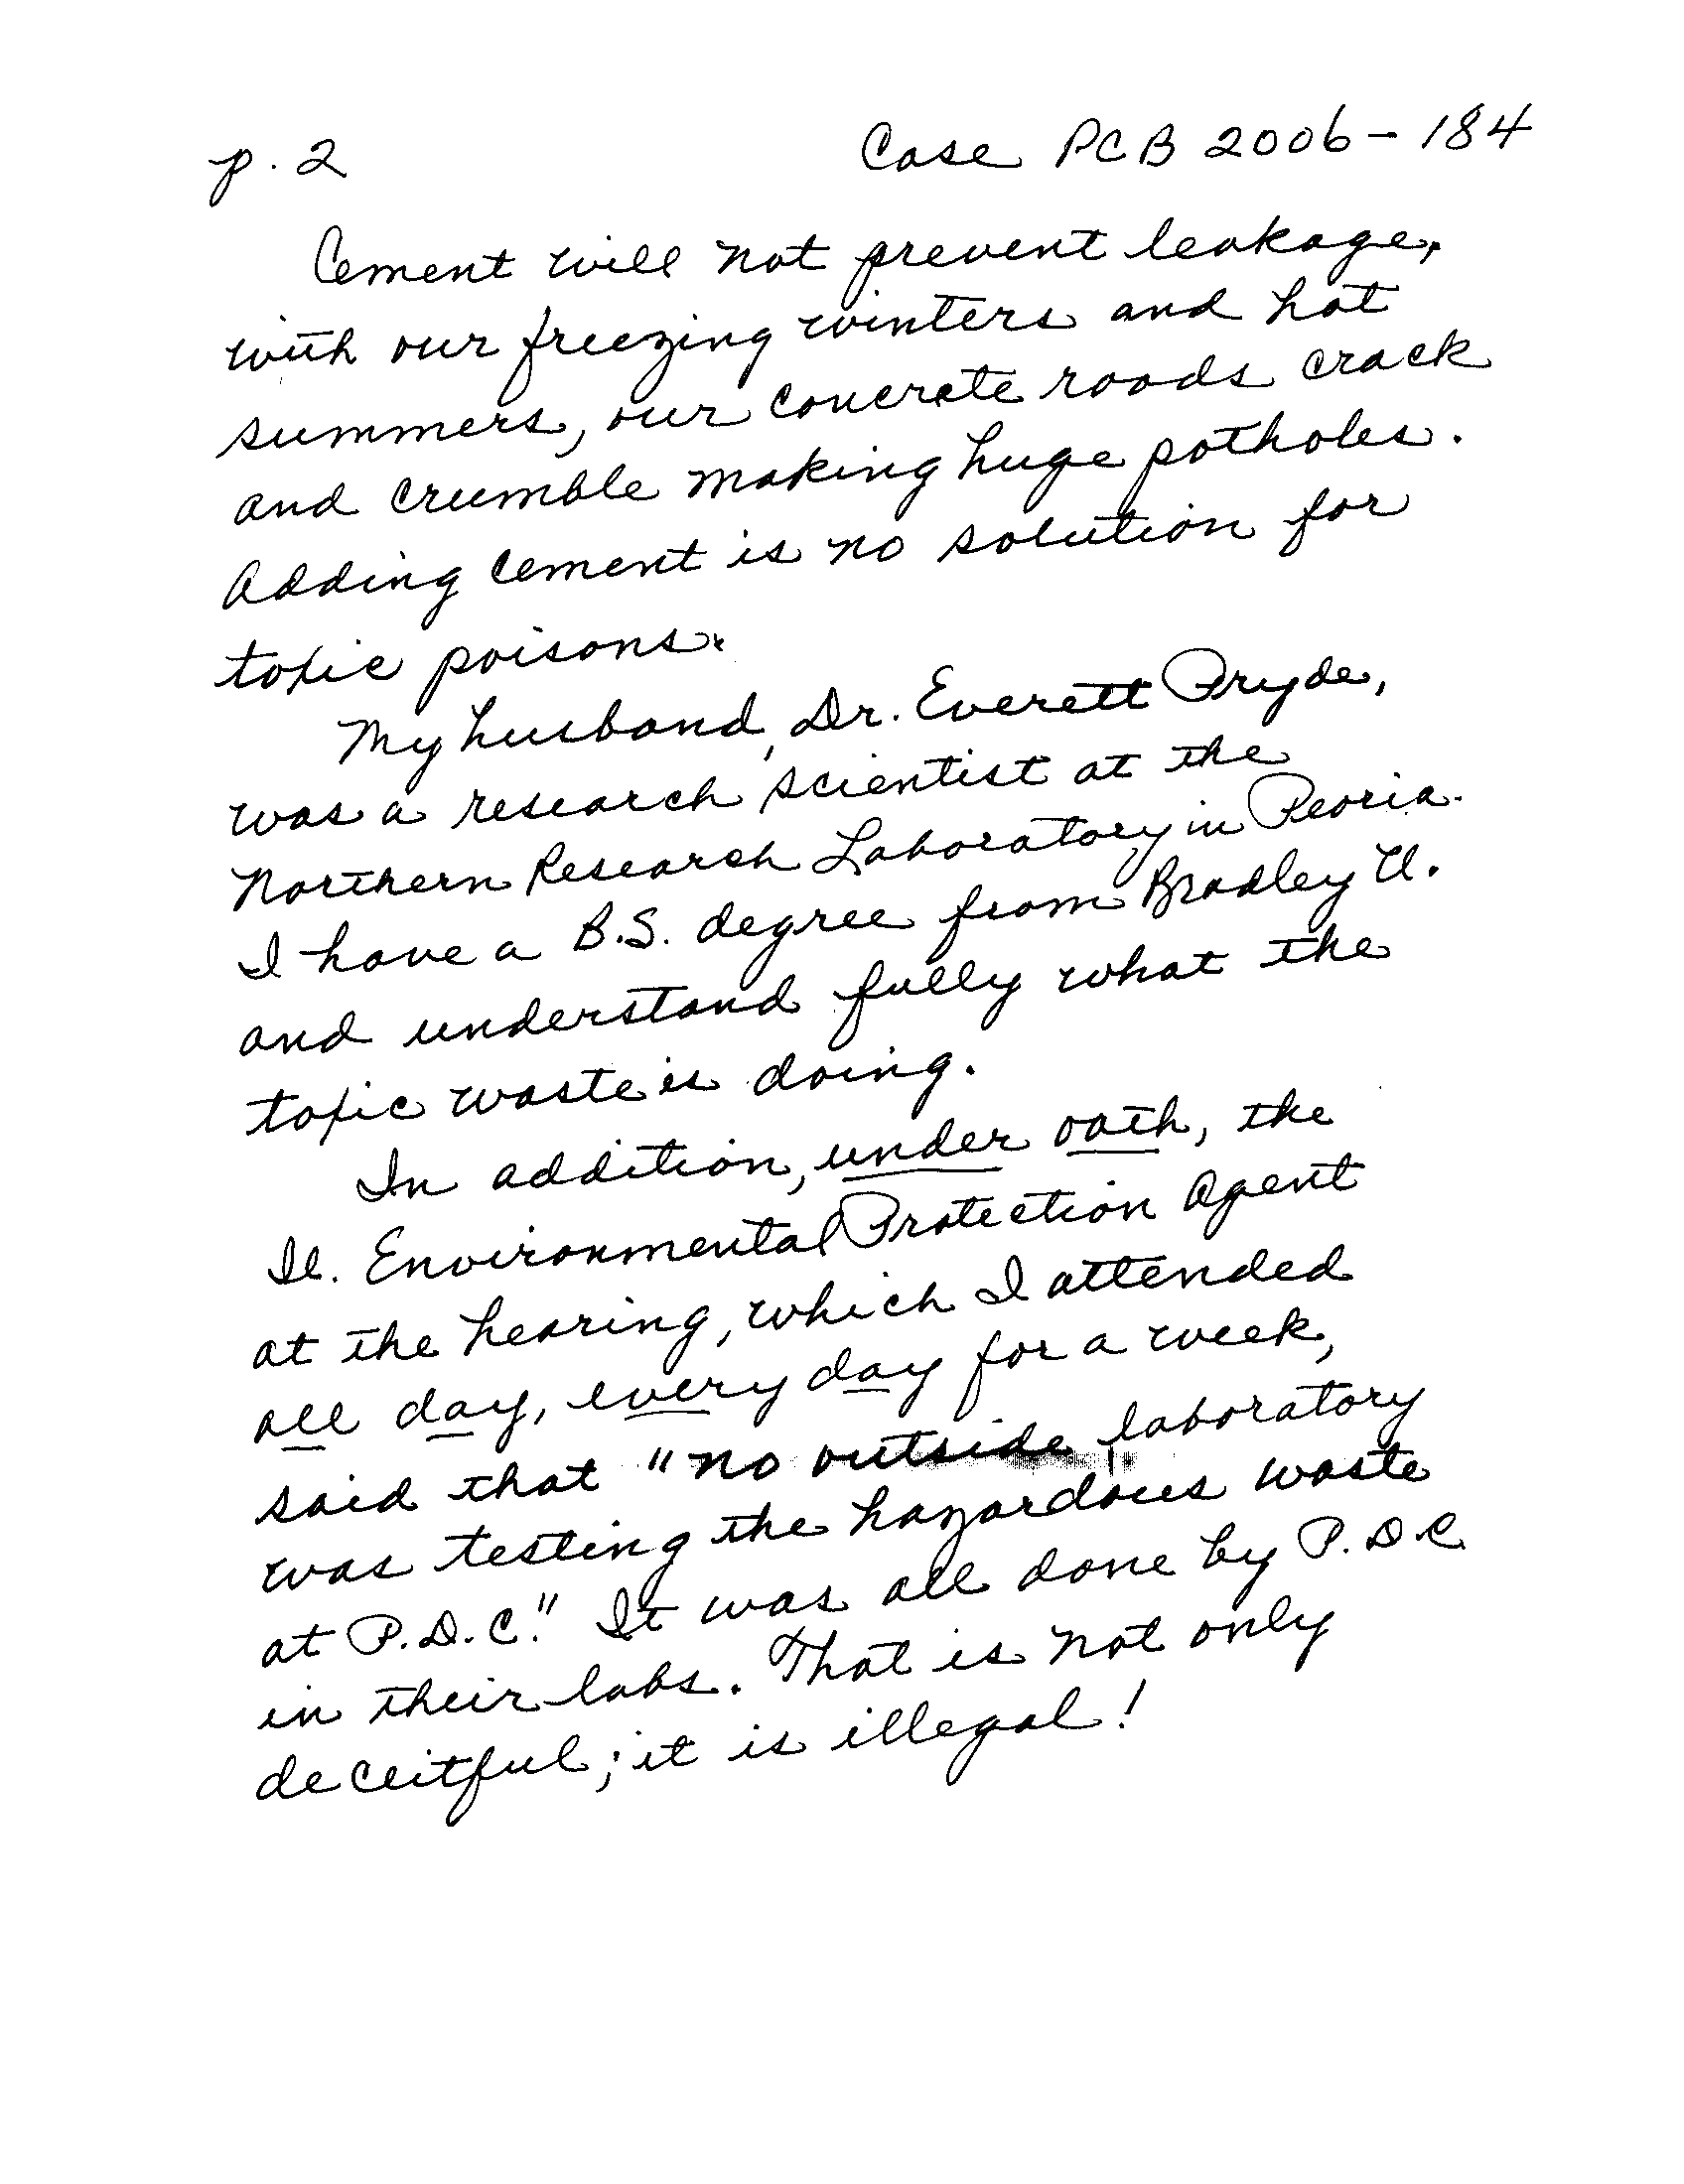 p. 2 Case PCB 2006-184
Cement will not prevent leakage,
with our freezing winters and hot
summers, our concrete roads crack
and crumble making huge potholes.
Adding cement is no solution for
toxic poisons.
My husband, Dr. Everett Pryde,
was a research scientist at the
Northern Research Laboratory in Peoria.
I have a B.S. degree from Bradley U.
and understand fully what the
toxic waste is doing.
In addition, under oath, the
Il. Environmental Protection Agent
at the hearing, which I attended
all day, every day for a week,
said that "no outside laboratory
was testing the hazardous waste
at P.D.C." It was all done by P.D.C.
in their labs. That is not only
deceitful; it is illegal!